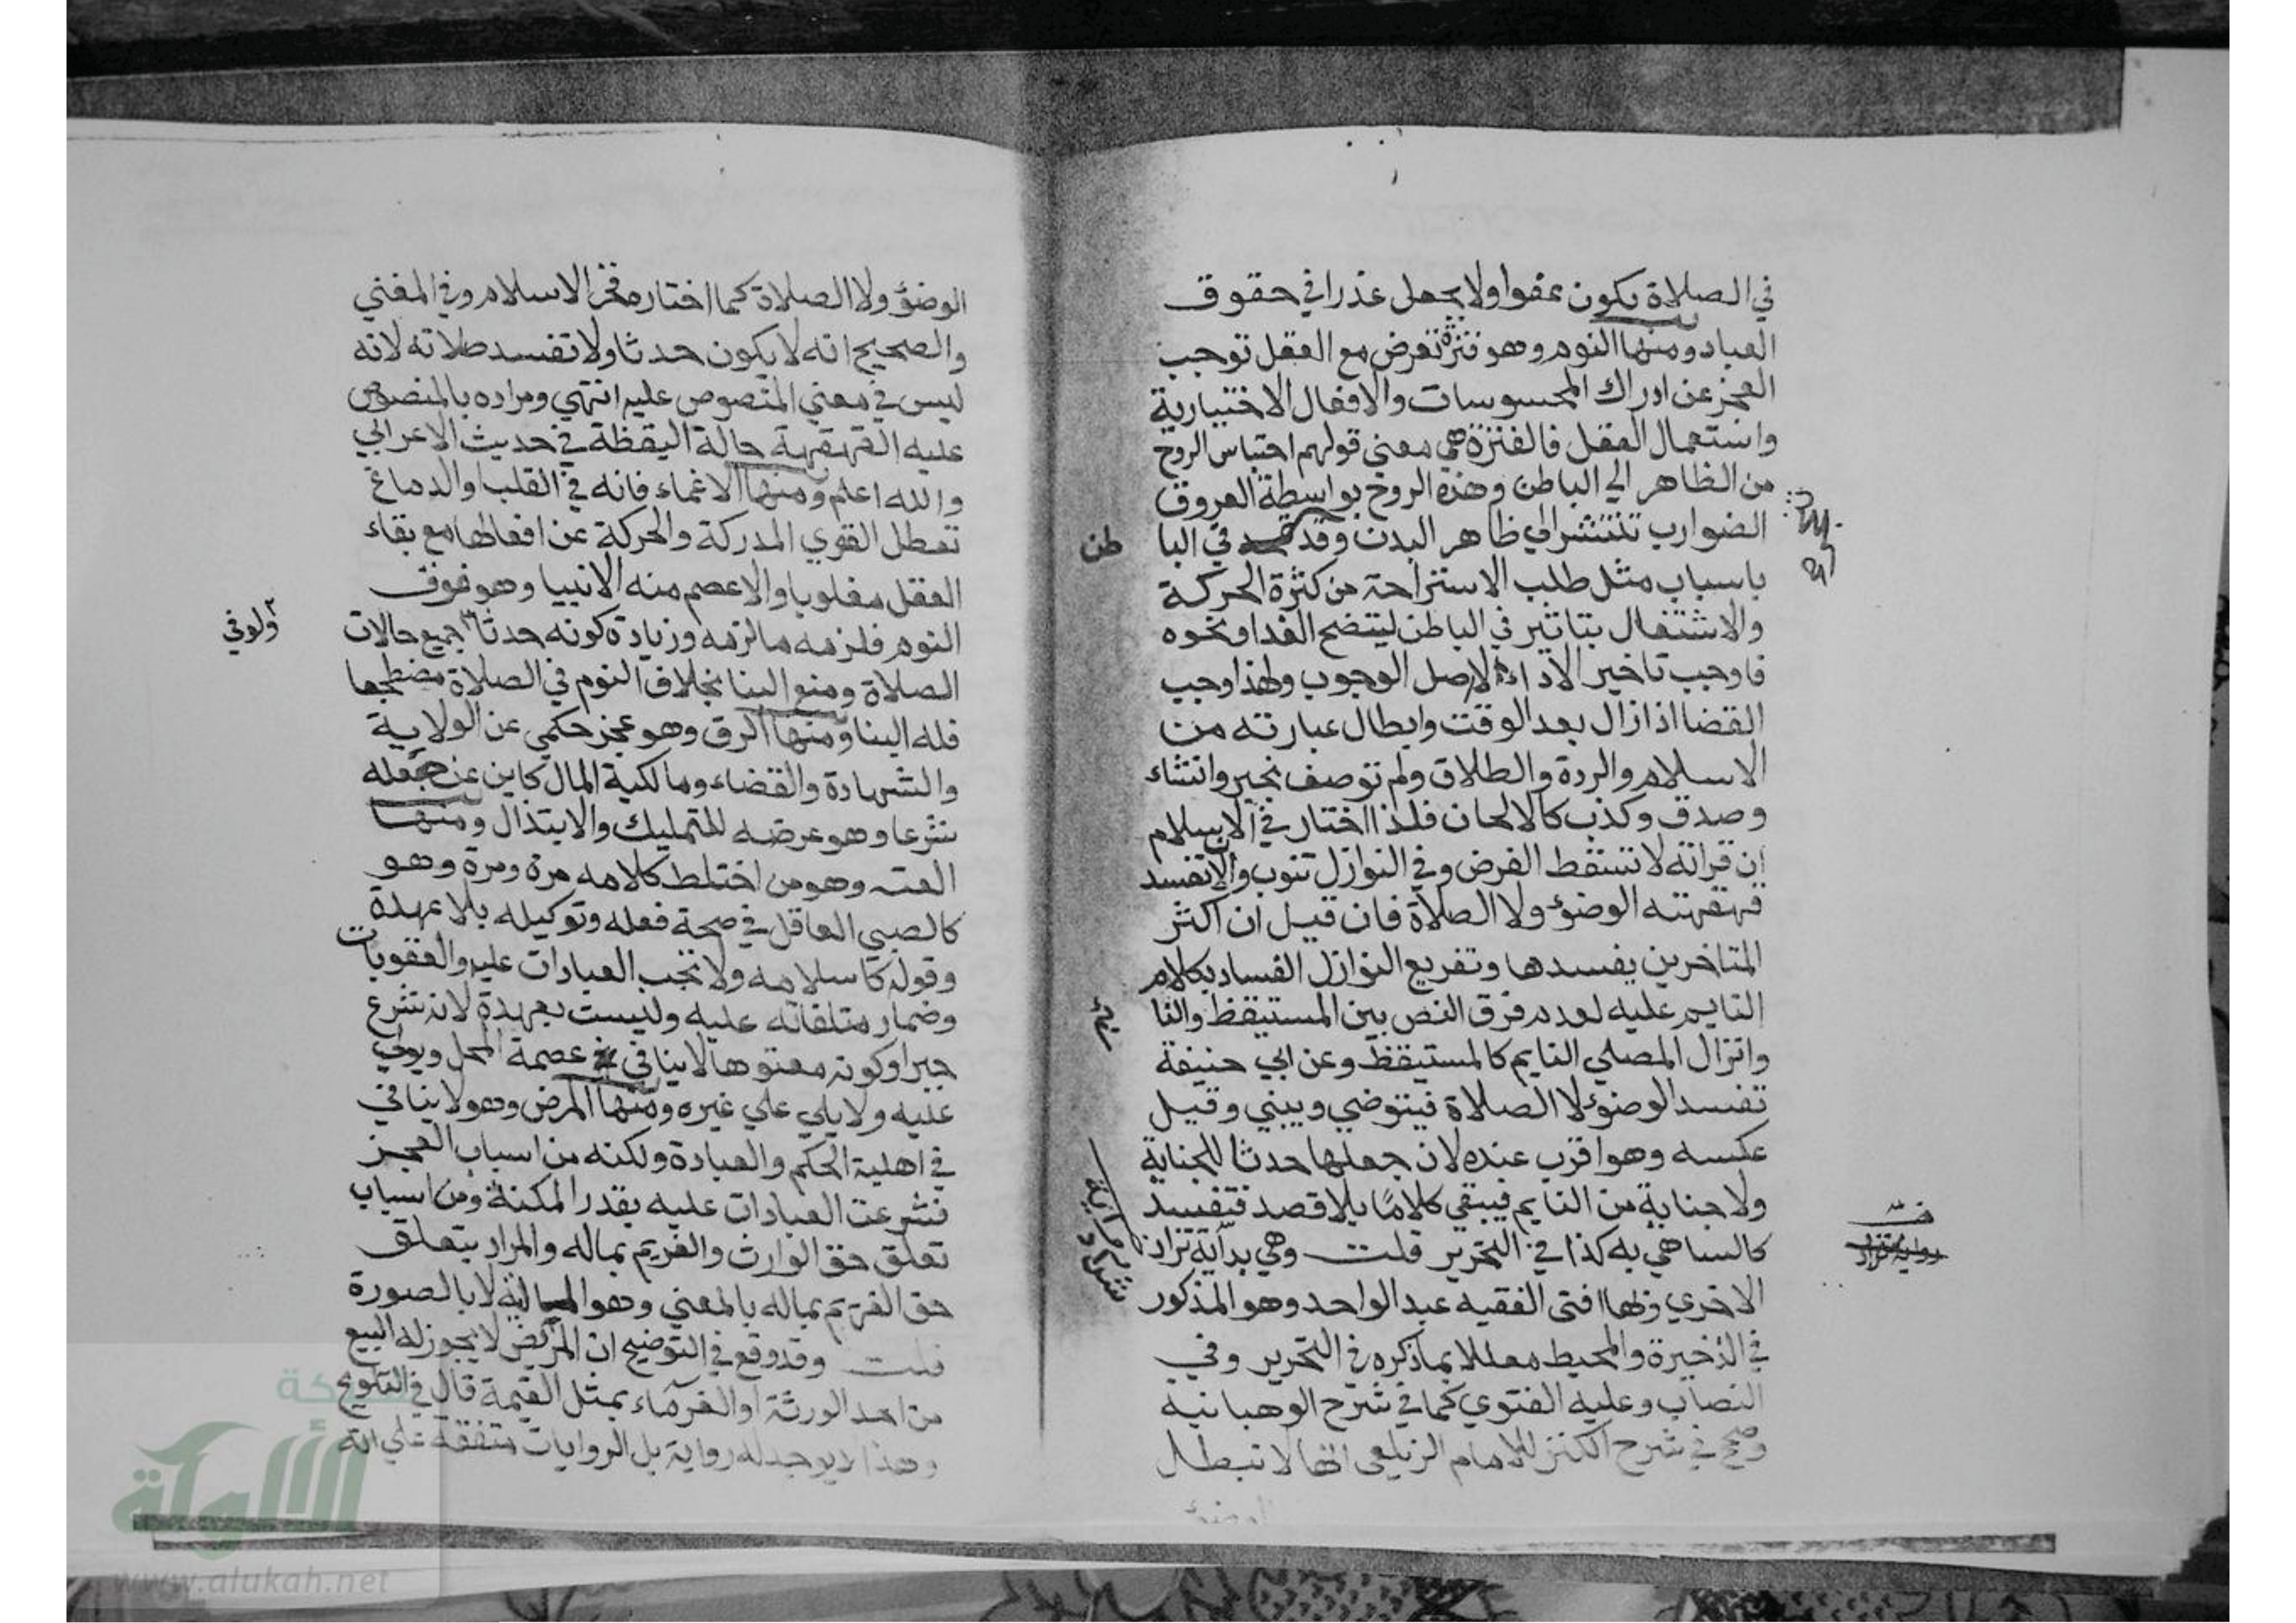 في الصلاة يكون عفوا ولا يجعل عذرا في حقوق
العباد ومنها النوم وهو فترة تعرض مع العقل توجب
العجز عن ادراك المحسوسات والافعال الاختيارية
واستعمال العقل فالفترة هي معني قولهم احتباس الروح
من الظاهر الي الباطن وهذه الروح بواسطة العروق
الضوارب تنتشر الي ظاهر البدن وقد في البا
طن
باسباب مثل طلب الاستراحة من كثرة الحركة
والاشتغال بتاثير في الباطن لينضج الغدا ونحوه
فاوجب تاخير الاداء لا اصل الوجوب ولهذا وجب
القضا اذا زال بعد الوقت وابطال عبارته من
الاسلام والردة والطلاق ولم توصف بخبر وانشاء
وصدق وكذب كالالحان فلذا اختار في الاسلام
ان قراته لا تسقط الفرض وفي النوازل تنوب والا تفسد
قهقهته الوضوء ولا الصلاة فان قيل ان اكثر
المتاخرين يفسدها وتفريع النوازل الفساد بكلام
النايم عليه لعدم فرق النص بين المستيقظ والنا
يم
وانزال المصلي النايم كالمستيقظ وعن ابي حنيفة
تفسد الوضوء لا الصلاة فيتوضي ويبني وقيل
عكسه وهو اقرب عنده لان جعلها حدثا للجناية
ولا جناية من النايم فيبقي كلاما بلا قصد فتفسد
كالساهي به كذا في التحرير قلت وهي بداية تزاد
الاخري ولها افتى الفقيه عبد الواحد وهو المذكور
في الذخيرة والمحيط معللا بما ذكره في التحرير وفي
النصاب وعليه الفتوي كما في شرح الوهبانيه
وصحح في شرح الكنز للامام الزيلعي انها لا تبطل
الوضوء
الوضؤ ولا الصلاة كما اختاره فخر الاسلام وفي المغني
والصحيح انه لا يكون حدثا ولا تفسد صلاته لانه
ليس في معني المنصوص عليه انتهي ومراده بالمنصوص
عليه القهقهة حالة اليقظة في حديث الاعرابي
والله اعلم ومنها الاغماء فانه في القلب او الدماغ
تعطل القوي المدركة والحركة عن افعالها مع بقاء
العقل مغلوبا والا عصم منه الانبيا وهو فوق
النوم فلزمه ما لزمه وزيادة كونه حدثا جميع حالات
ولو في
الصلاة ومنع البنا بخلاف النوم في الصلاة مضطجعا
فله البنا ومنها الرق وهو عجز حكمي عن الولاية
والشهادة والقضاء ومالكية المال كاين عن جعله
شرعا وهو عرضه للتمليك والابتذال ومنها
العته وهو من اختلط كلامه مرة ومرة وهو
كالصبي العاقل في صحة فعله وتوكيله بلا عهدة
وقوله كاسلامه ولا تجب العبادات عليه والعقوبات
وضمان متلفاته عليه وليست بعهدة لانه شرع
جبرا وكونه معتوها لا ينافي عصمة المحل ويولي
عليه ولا يلي علي غيره ومنها المرض وهو لا ينافي
في اهلية الحكم والعبادة ولكنه من اسباب العجز
فشرعت العبادات عليه بقدر المكنة ومن اسباب
تعلق حق الوارث والغريم بماله والمراد بتعلق
حق الغريم بماله بالمعني وهو المالية لا بالصورة
قلت وقد وقع في التوضيح ان المريض لا يجوز له البيع
من احد الورثة او الغرماء بمثل القيمة قال في التلويح
وهذا لا يوجد له رواية بل الروايات متفقة علي انه
شبكة
الألوكة
www.alukah.net